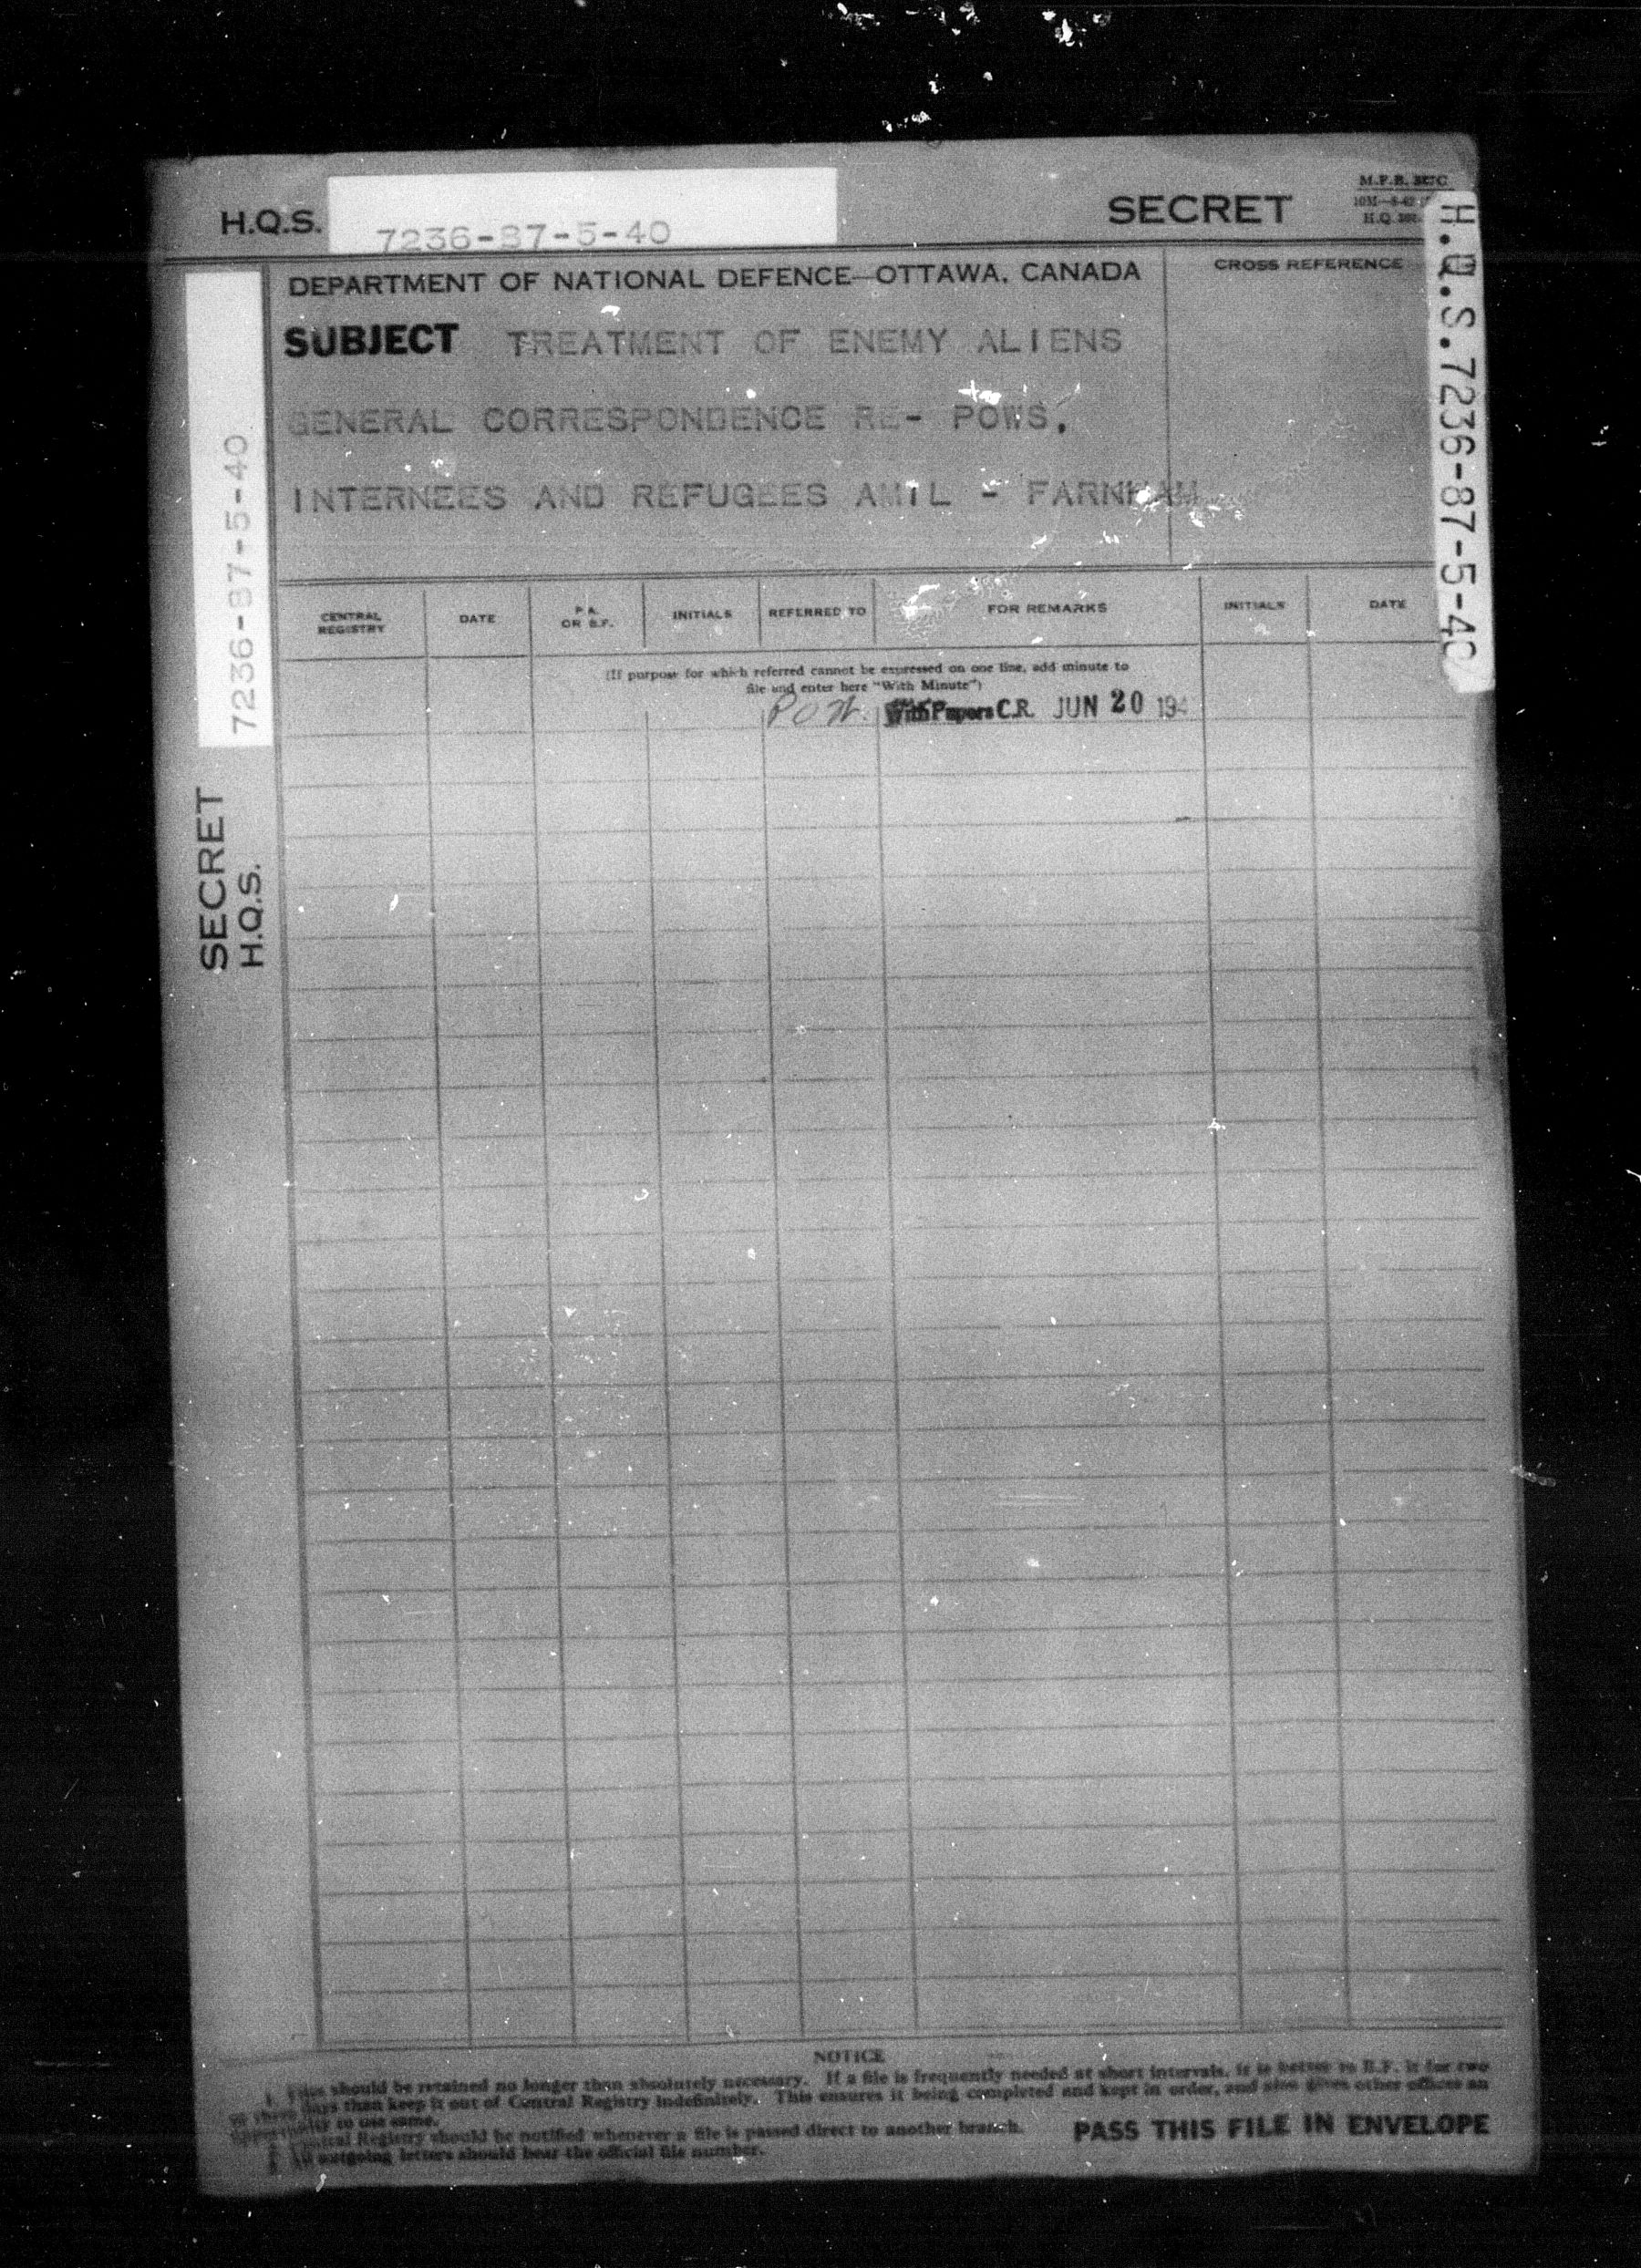 M.F.B.
10M—8-42
H.Q.S. 7236-87-5-40
SECRET
H.Q.
H.Q.S. 7236-87-5-40
DEPARTMENT OF NATIONAL DEFENCE—OTTAWA, CANADA
CROSS REFERENCE
SUBJECT TREATMENT OF ENEMY ALIENS
GENERAL CORRESPONDENCE RE- POWS.
INTERNEES AND REFUGEES AMIL - FARNHAM
7236-87-5-40
SECRET
H.Q.S.
CENTRAL REGISTRY
DATE
P.A. OR B.F.
INITIALS
REFERRED TO
FOR REMARKS
INITIALS
DATE
(If purpose for which referred cannot be expressed on one line, add minute to
file and enter here "With Minute")
POW. With Papers C.R. JUN 20 194
NOTICE
1. Files should be retained no longer than absolutely necessary. If a file is frequently needed at short intervals, it is better to B.F. it for two
or three days than keep it out of Central Registry indefinitely. This ensures it being completed and kept in order, and also gives other offices an
opportunity to use same.
2. Central Registry should be notified whenever a file is passed direct to another branch.
3. All outgoing letters should bear the official file number.
PASS THIS FILE IN ENVELOPE